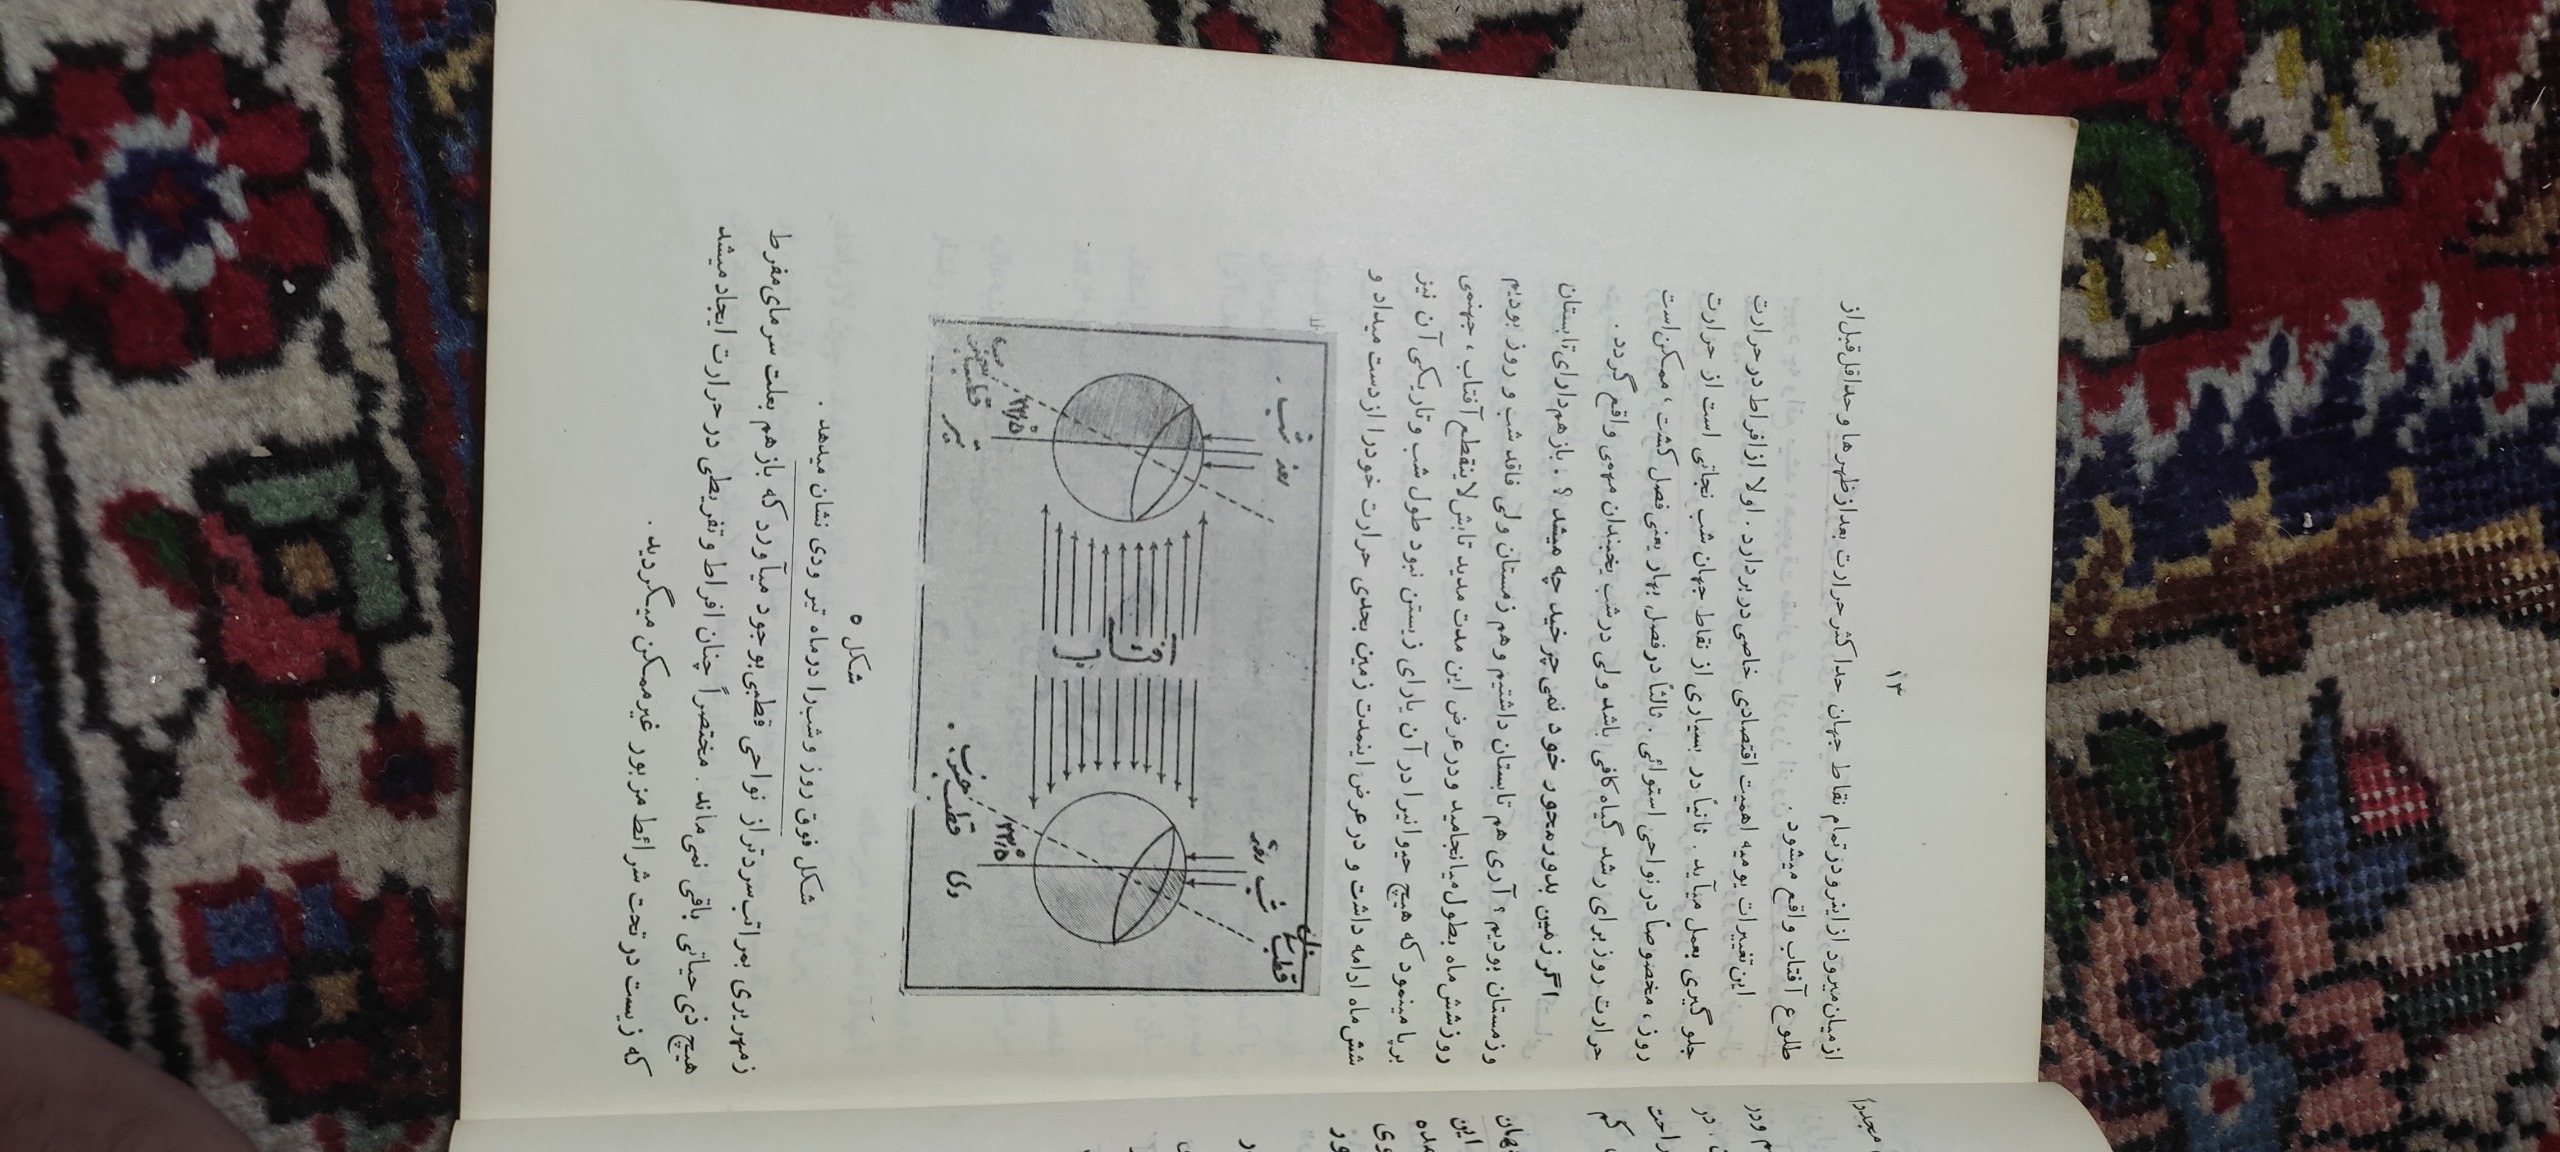 ۱۳
از میان میرود از اینرو در تمام نقاط جهان حداکثر حرارت بعداز ظهرها و حداقل قبل از
طلوع آفتاب واقع میشود .
این تغییرات یومیه اهمیت اقتصادی خاصی در بر دارد . اولا از افراط در حرارت
جلوگیری بعمل میآید . ثانیاً در بسیاری از نقاط جهان شب نجاتی است از حرارت
روز ، مخصوصاً در نواحی استوائی . ثالثاً در فصل بهار یعنی فصل کشت ، ممکن است
حرارت روز برای رشد گیاه کافی باشد ولی در شب یخبندان مهمی واقع گردد .
اگر زمین بدور محور خود نمی چرخید چه میشد ؟ . باز هم دارای تابستان
و زمستان بودیم ؟ آری هم تابستان داشتیم و هم زمستان ولی فاقد شب و روز بودیم
روز شش ماه بطول میانجامید و در عرض این مدت مدید تابش لاینقطع آفتاب ، جهنمی
بر پا مینمود که هیچ حیوانیرا در آن یارای زیستن نبود طول شب و تاریکی آن نیز
شش ماه ادامه داشت و در عرض اینمدت زمین بحدی حرارت خود را از دست میداد و
قطب شمال
شب
روز
شب
۲۳/۵°
۲۳/۵°
قطب جنوب
قطب جنوب
دی
تیر
شکل ۵
شکل فوق روز و شب را در ماه تیر و دی نشان میدهد .
زمهریری بمراتب سردتر از نواحی قطبی بوجود میآورد که باز هم بعلت سرمای مفرط
هیچ ذی حیاتی باقی نمی ماند . مختصراً چنان افراط و تفریطی در حرارت ایجاد میشد
که زیست در تحت شرائط مزبور غیر ممکن میگردید .